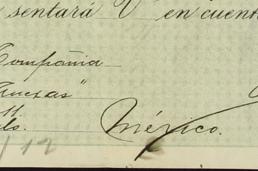 sentará V en cuenta
Compañia
Anexas"
México.
12